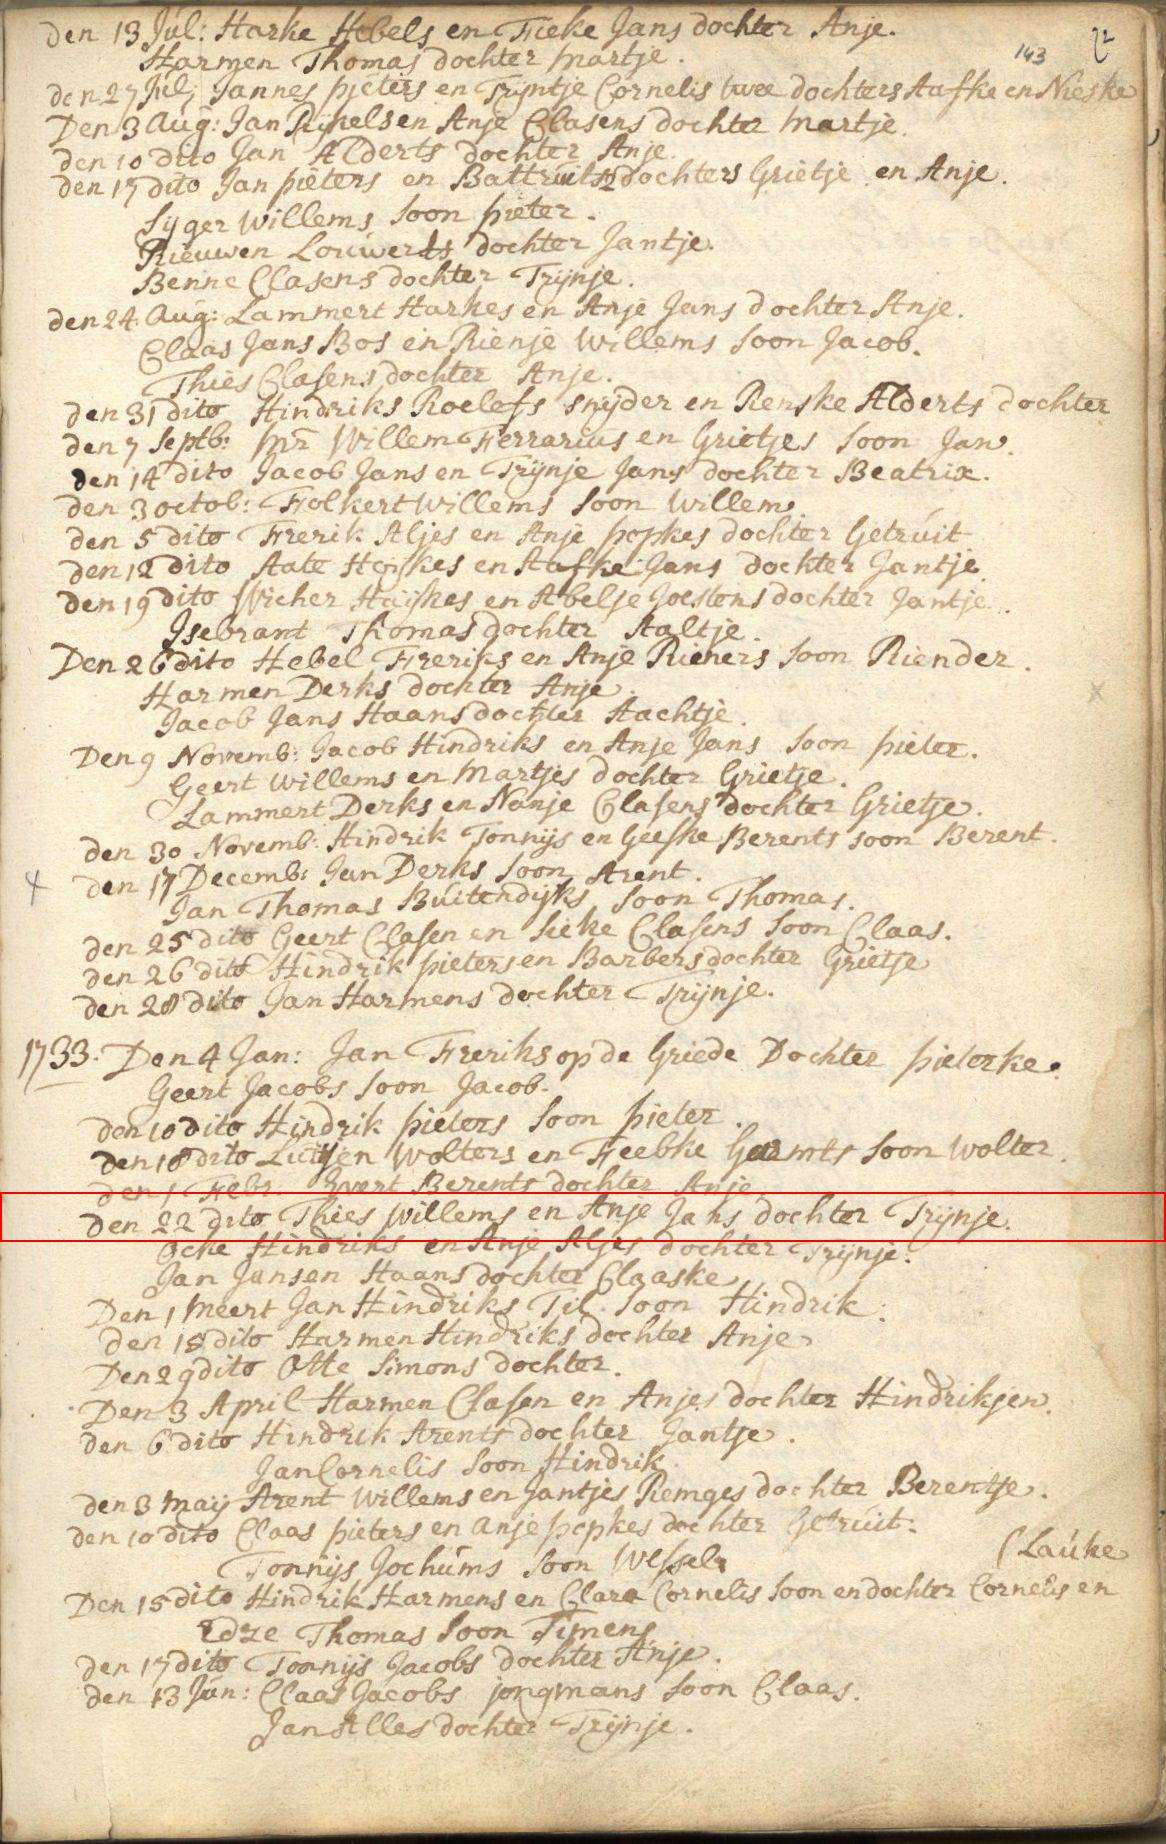 143
72
den 13 Jul: Harke Hebels en Fieke Jans dochter Anje.
Harmen Thomas dochter Martje.
den 27 Jul; Jannes pieters en Trijntje Cornelis twee dochters Aafke en Nieske
Den 3 Aug: Jan Rijkels en Anje Clasens dochter Martje.
den 10 dito Jan Alderts dochter Anje.
den 17 dito Jan pieters en Battruits dochters Grietje en Anje.
Sijger Willems soon pieter.
Rieuwen Louwerts dochter Jantje.
Benne Clasens dochter Trijnje.
den 24 Aug: Lammert Harkes en Anje Jans dochter Anje.
Claas Jans Bos en Rienje Willems soon Jacob.
Thies Clasens dochter Anje.
den 31 dito Hindriks Roelefs snijder en Renske Alderts dochter
den 7 Septb: Mr Willem Ferrarius en Grietjes soon Jan.
den 14 dito Jacob Jans en Trijnje Jans dochter Beatrix.
den 3 octob: Folkert Willems soon Willem.
den 5 dito Frerik Aljes en Anje popkes dochter Getruit
den 12 dito Aate Heijkes en Aafke Jans dochter Jantje.
den 19 dito Wicher Haijkes en Abelje Joestens dochter Jantje.
Isebrant Thomas dochter Aaltje.
Den 26 dito Hebel Freriks en Anje Rieners soon Riender.
Harmen Derks dochter Anje.
Jacob Jans Haans dochter Aachtje.
Den 9 Novemb: Jacob Hindriks en Anje Jans soon pieter.
Geert Willems en Martjes dochter Grietje.
Lammert Derks en Nanje Clasens dochter Grietje.
den 30 Novemb: Hindrik Tonnijs en Geeske Berents soon Berent.
den 17 Decemb: Jan Derks soon Arent.
Jan Thomas Buitendijks soon Thomas.
den 25 dito Geert Clasen en Sieke Clasens soon Claas.
den 26 dito Hindrik pieters en Barbers dochter Grietje
den 28 dito Jan Harmens dochter Trijnje.
1733. Den 4 Jan: Jan Freriks op de Griede Dochter pieterke.
Geert Jacobs soon Jacob.
den 10 dito Hindrik pieters soon pieter.
den 18 dito Luitjen Wolters en Feebke Garmts soon Wolter.
den 1 Febr: Evert Berents dochter Anje
den 22 dito Thies Willems en Anje Jans dochter Trijnje.
Ocke Hindriks en Anje Aljes dochter Trijnje.
Jan Jansen Haans dochter Claaske
Den 1 Meert Jan Hindriks Til soon Hindrik.
den 15 dito Harmen Hindriks dochter Anje
Den 29 dito Otte Simons dochter.
Den 3 April Harmen Clasen en Anjes dochter Hindrikjen.
den 6 dito Hindrik Arents dochter Jantje.
Jan Cornelis soon Hindrik.
den 3 Maij Arent Willems en Jantjes Remges dochter Berentje.
den 10 dito Claas pieters en Anje popkes dochter Getruit.
Tonnijs Jochums soon Wessel.
(Lauke
Den 15 dito Hindrik Harmens en Clara Cornelis soon en dochter Cornelis en
Edze Thomas soon Timens
den 17 dito Tonnijs Jacobs dochter Anje.
den 13 Jun: Claas Jacobs jongmans soon Claas.
Jan Alles dochter Trijnje.